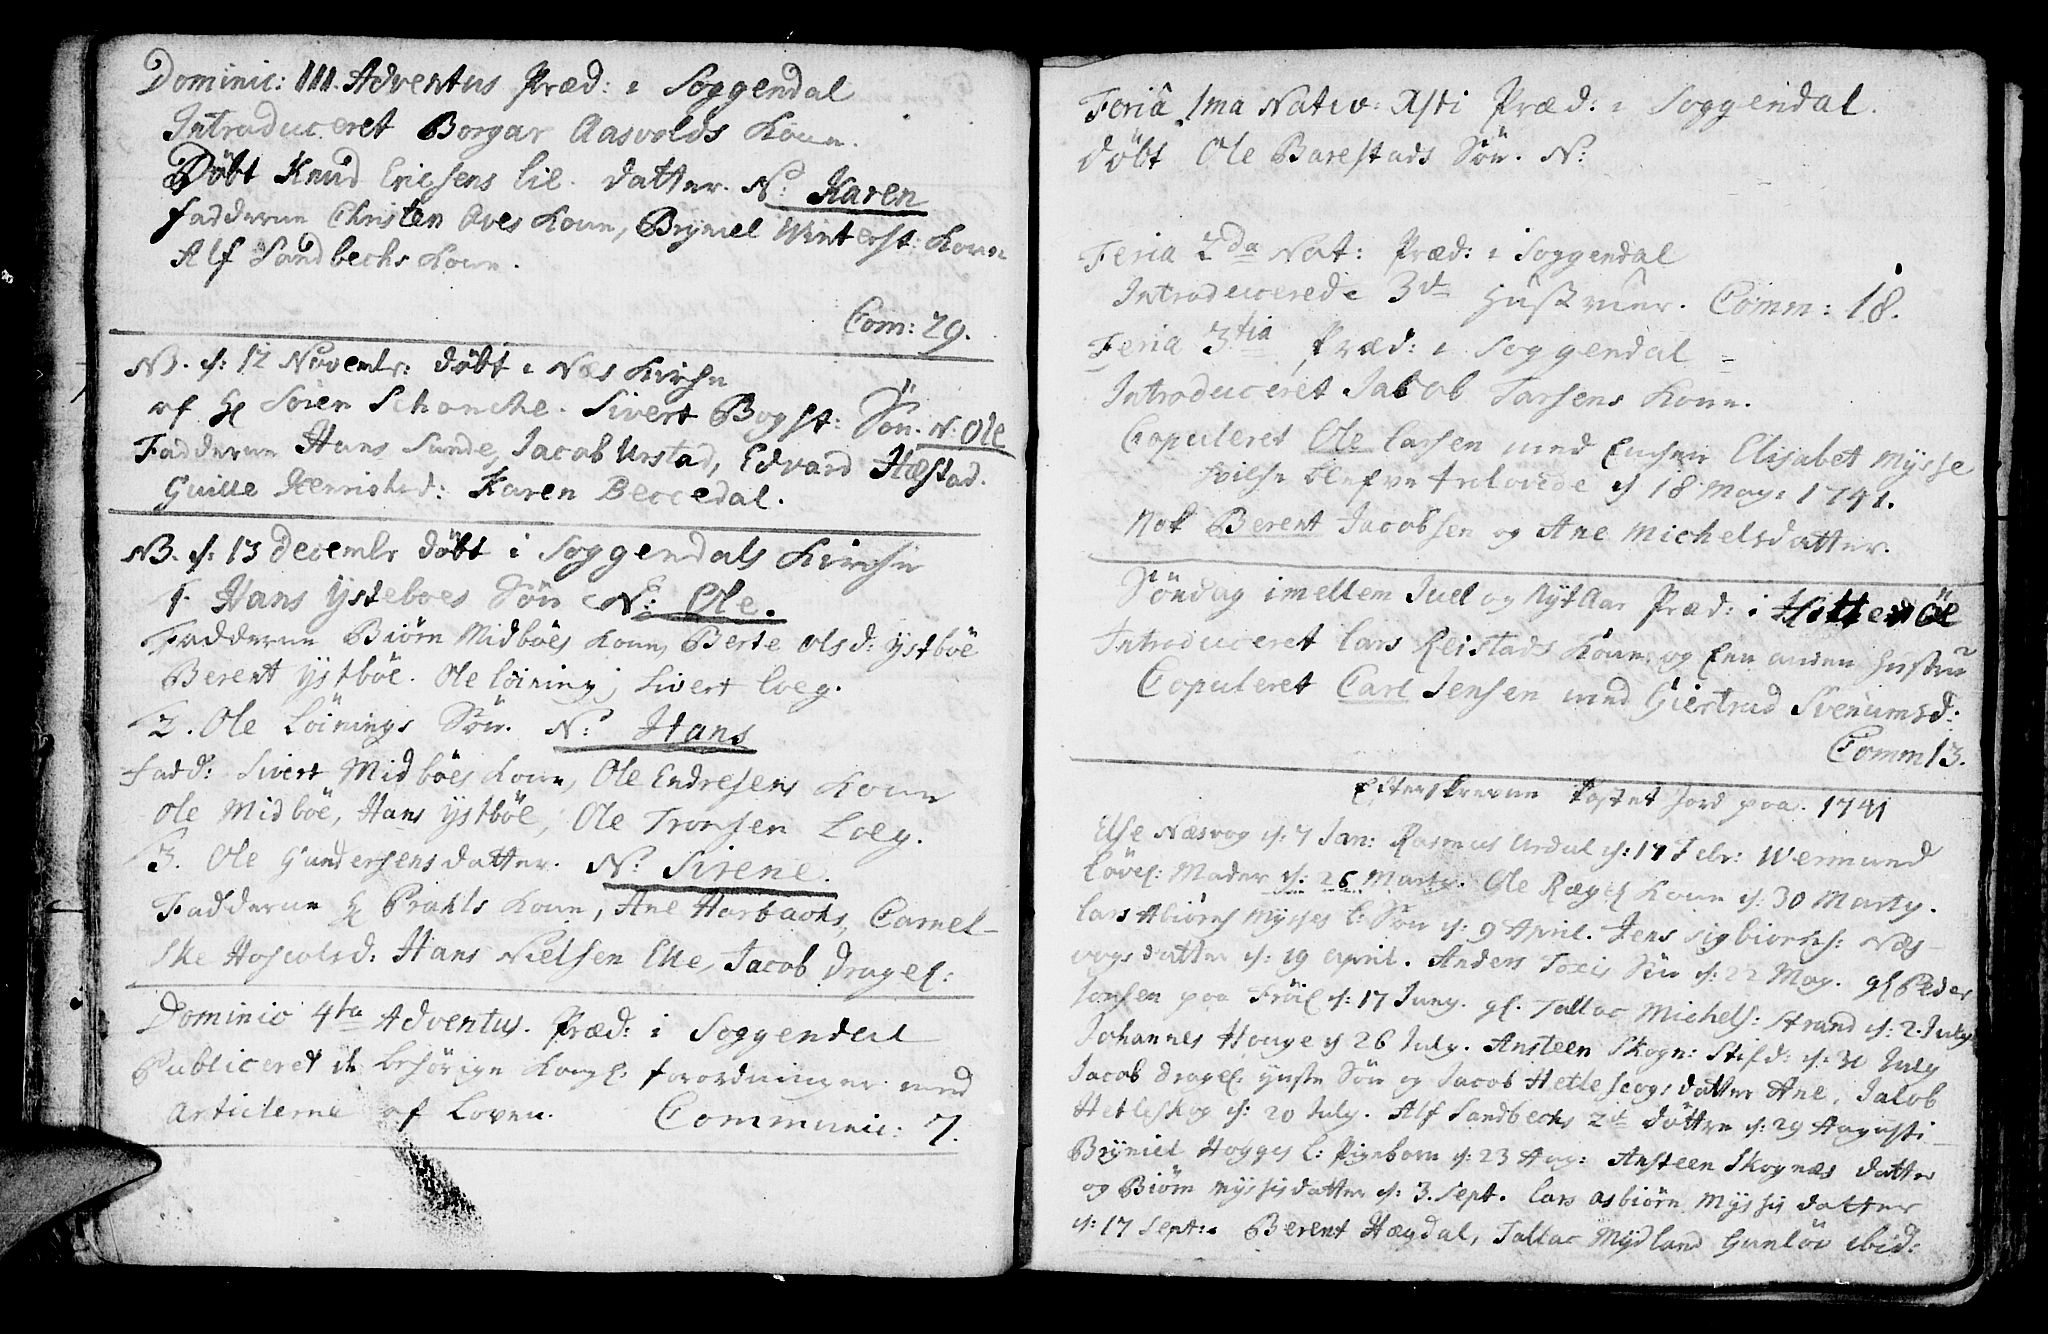 Dominic: III. Adventus Præd: i Soggendal
Introduceret Borgar Aasvolds Kone.
Döbt Knud Ericsens Lie. datter. N: Karen
Fadderne Christen Aves Kone, Bryniel Winterst: Kone
Alf Sandbechs Kone.
Com: 29.
NB. d: 12 Novembr: döbt i Næs Kirche
af Hr Sören Schanche. Sivert Bogst: Sön. N: Ole
Fadderne Hans Sunde, Jacob Urstad, Edvard Hæstad.
Guille Karen Beccedal.
NB. d: 13 decembr döbt i Soggendals Kirche
1. Hans Ysteboes Sön N: Ole.
Fadderne Biörn Midböes Kone, Berte Olsd: Ystböe
Berent Ystböe. Ole Löining, Sivert Loeg.
2. Ole Löinings Sön. N: Hans
Fadd: Sivert Midböes Kone, Ole Endresens Kone
Ole Midböe, Hans Ystböe, Ole Tronsen Loeg.
3. Ole Gundersens datter. N: Sirene.
Fadderne Hr Prahls Kone, Ane Harbachs, Carnel-
ske Hans Nielsen Eke, Jacob Dragel:
Dominic 4ta Adventus. Præd: i Soggendal
Publiceret de behörige Kongl: forordninger med
Articlerne af Loven. Communic: 7.
Feria 1ma Nativ: Xsti Præd: i Soggendal.
döbt Ole Barestads Sön. N:
Feria 2da Nat: Præd: i Soggendal
Introducerede 3de Hustruer. Comm: 18.
Feria 3tia Præd: i Soggendal
Introduceret Jacob Larsens Kone.
Copuleret Ole Larsen med Enken Elisabet Mysse
hvilke blefve trolovede d 18 May: 1741.
Nok Berent Jacobsen og Ane Michelsdatter.
Söndag imellem Juel og Nytaar Præd: i Hitteröe
Introduceret Lars Reistads Kone og Een anden Hustru
Copuleret Carl Jensen med Giertrud Svenumsd:
Comm 13.
Efterskrevne Kastet Jord paa. 1741
Else Næsvog d: 7 Jan: Rasmus Urdal d: 17 Febr: Wermund
Lövel: Mader d: 26 Marty. Ole Rægel Kone d: 30 Marty.
Lars Asbiörns Mysses l: Sön d: 9 April. Jens Sigbiörns: Næs-
vogs datter d: 19 April. Anders Toxis Sön d: 22 May. gl Peder
Jonsen paa Fröil d: 17 Juny. gl. Tallac Michels: Strand d: 2. July
Johannes Houge d 26 July. Ansteen Skogn: Stifd: d: 31 July
Jacob Dragel: yngste Sön og Jacob Hetlescogs datter Ane, Jacob
Hetleskog d: 20 July. Alf Sandbechs 2de döttre d: 29 Augusti
Bryniel Hogges l: Pigeborn d: 23 Aug: Ansteen Skognæs datter
og Biörn Myssis datter d: 3. Sept. Lars Asbiörn Myssis datter
d: 17 Sept: Berent Hægdal, Tallac Mydland Gunlöv ibid: